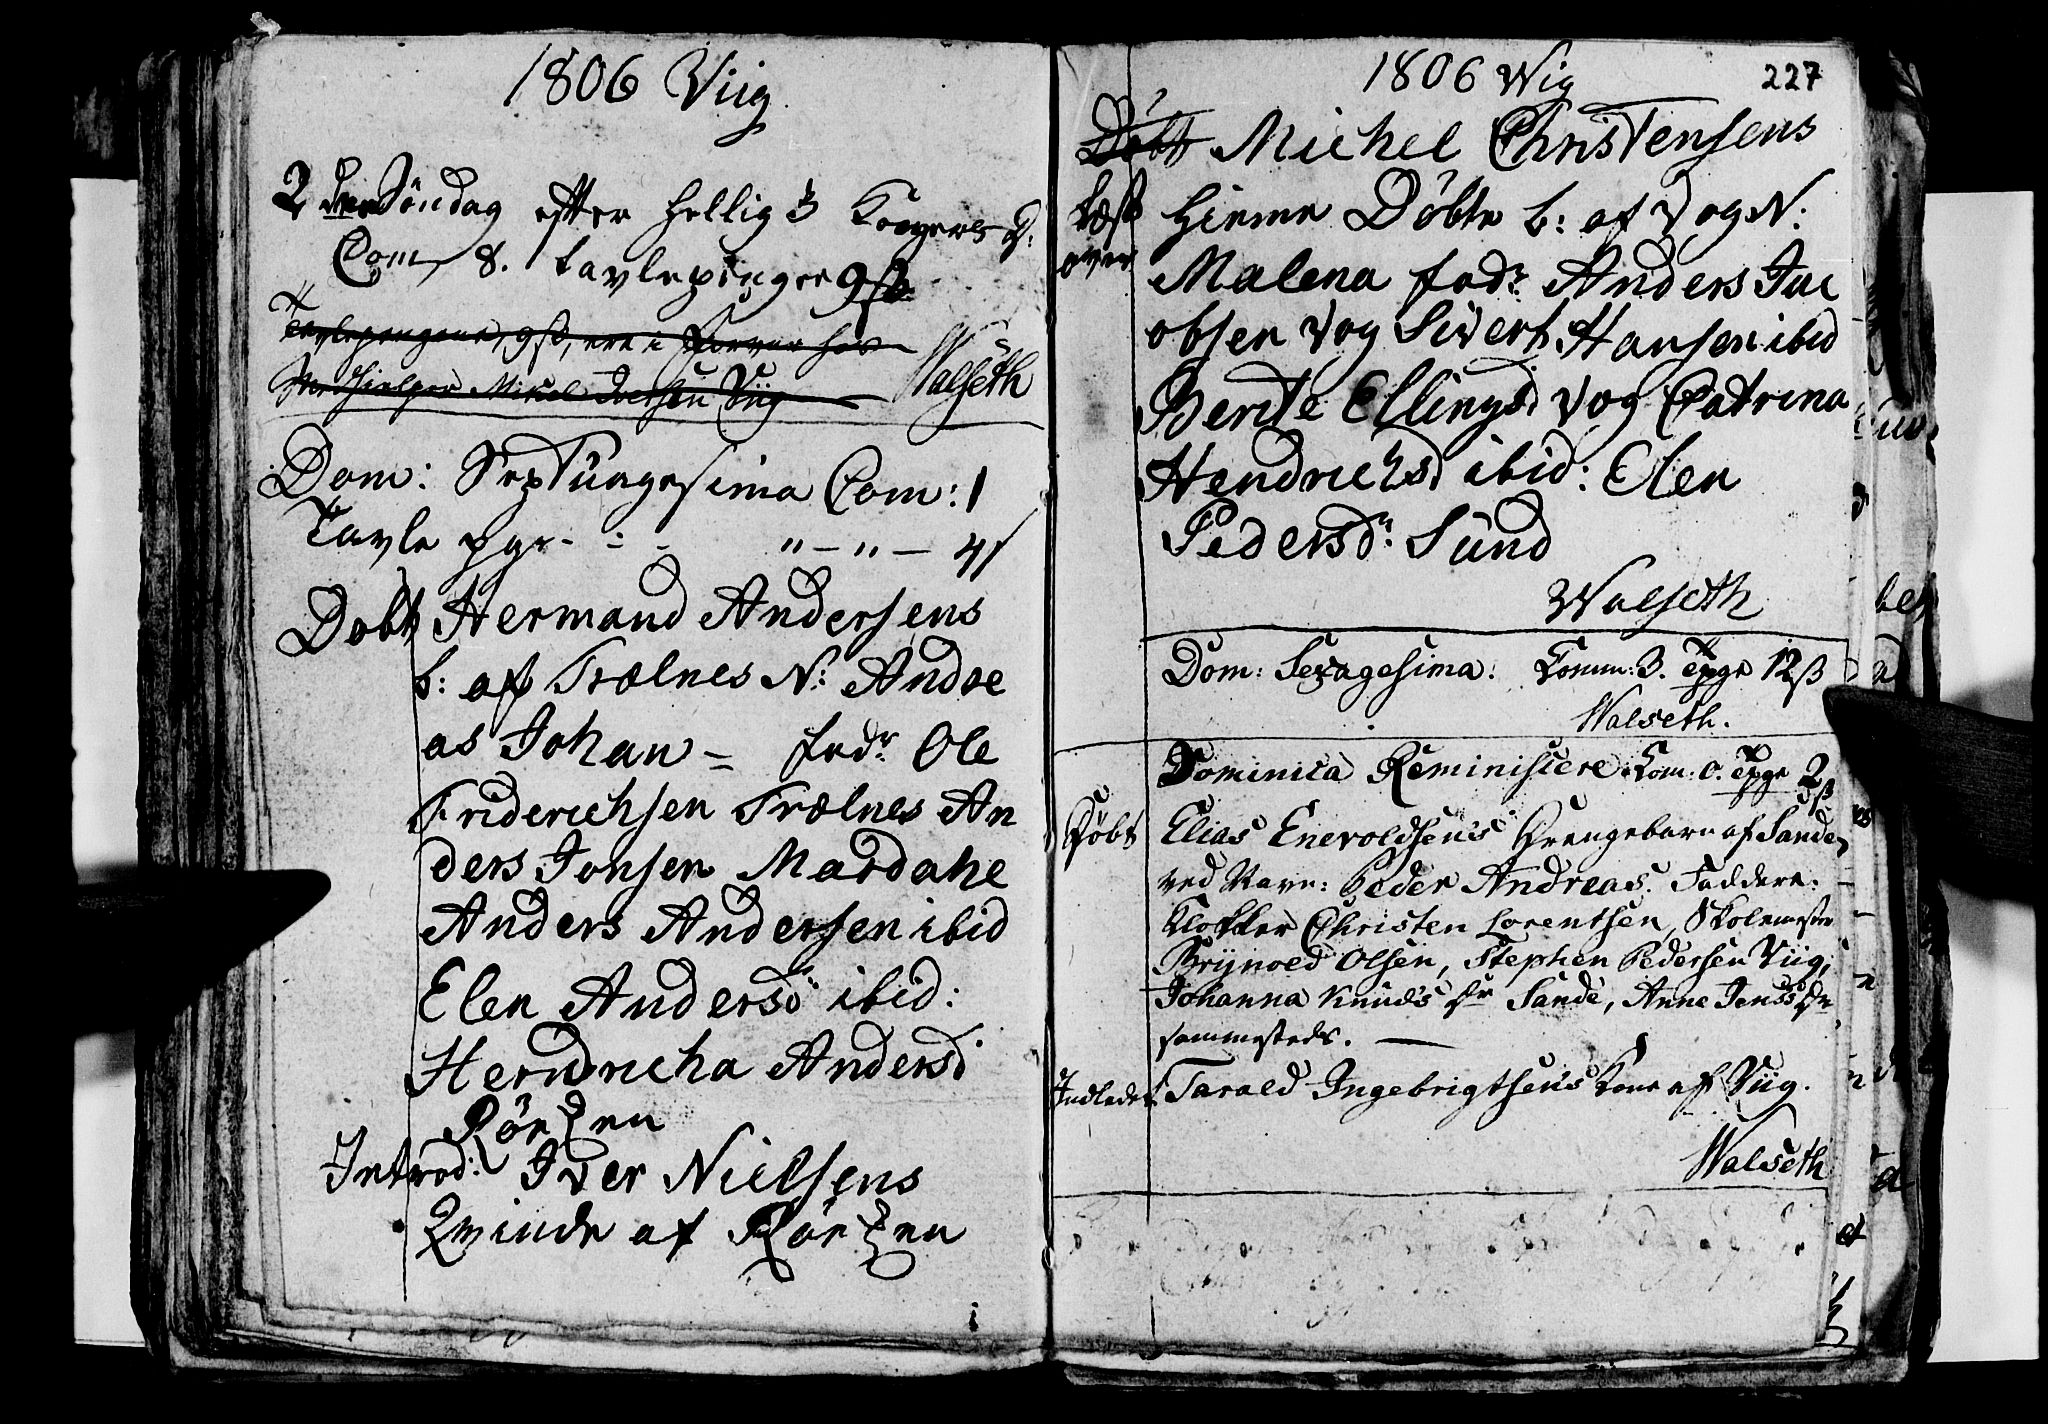 1806 Viig
2den Søndag efter Hellig 3 Kongers D:
Com 8. Tavlepenger 9 ß
Tavlepengene, 9 ß, ere i Forvar hos
Medhielper Mikel Iversen Viig
Walseth
Dom: Septuagesima Com: 1
Tavle pgr - : - " - " - 4 ß
Døbt Hermand Andersens
b: af Trælnes N: Andre
as Johan = fadr Ole
Friderichsen Trælnes An
ders Jonsen Mardahe
Anders Andersen ibid
Elen Andersd ibid:
Hendricha Andersd
Rørøen
Introd: Iver Nielsens
Qvinde af Rørøen
1806 Wig 227
Døbt Michel Christensens
Læst over hieme Døbte b: af Vog N:
Malena fadr Anders Jac
obsen Vog Sivert Hansen ibid
Berite Ellingsd Vog Catrina
Hendrichsd ibid: Elen
Pedersdr Sund
Walseth
Dom: Sexagesima: Comm: 3. Tpge 12 ß
Walseth.
Dominica Reminiscere. Com: 0. Tpge 2 ß
Døbt Elias Enevoldsen's Drengebarn af Sande,
ved Navn: Peder Andreas. Faddere:
Klokker Christen Lorentsen, Skolemester
Brynold Olsen, Stephen Pedersen Viig,
Johanna Knud's dr Sande, Anne Jens's dr
sammesteds. —
Indledt. Tarald Ingebrigtsen's Kone af Viig.
Walseth